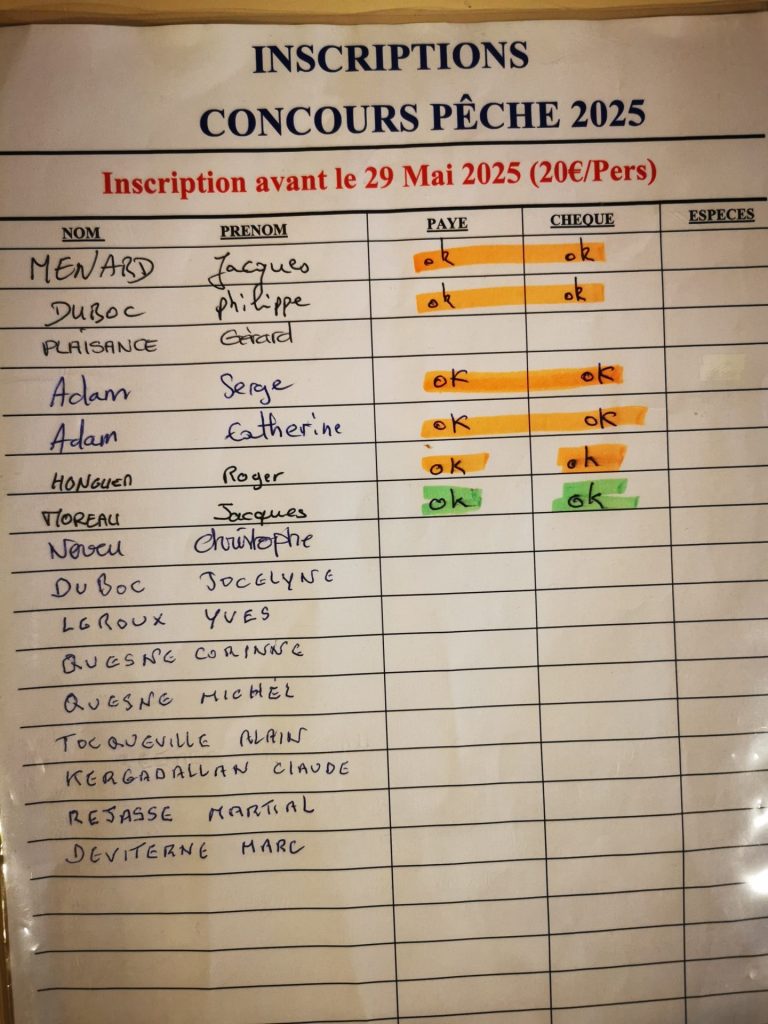 INSCRIPTIONS
CONCOURS PÊCHE 2025
Inscription avant le 29 Mai 2025 (20€/Pers)
NOM PRENOM PAYE CHEQUE ESPECES
MENARD Jacques ok ok
DUBOC philippe ok ok
PLAISANCE Gérard
Adam Serge ok ok
Adam Catherine ok ok
Roger ok ok
MOREAU Jacques ok ok
Neveu Christophe
DUBOC JOCELYNE
LEROUX YVES
QUESNE CORINNE
QUESNE MICHEL
TOCQUEVILLE ALAIN
KERGADALLAN CLAUDE
REJASSE MARTIAL
DEVITERNE MARC